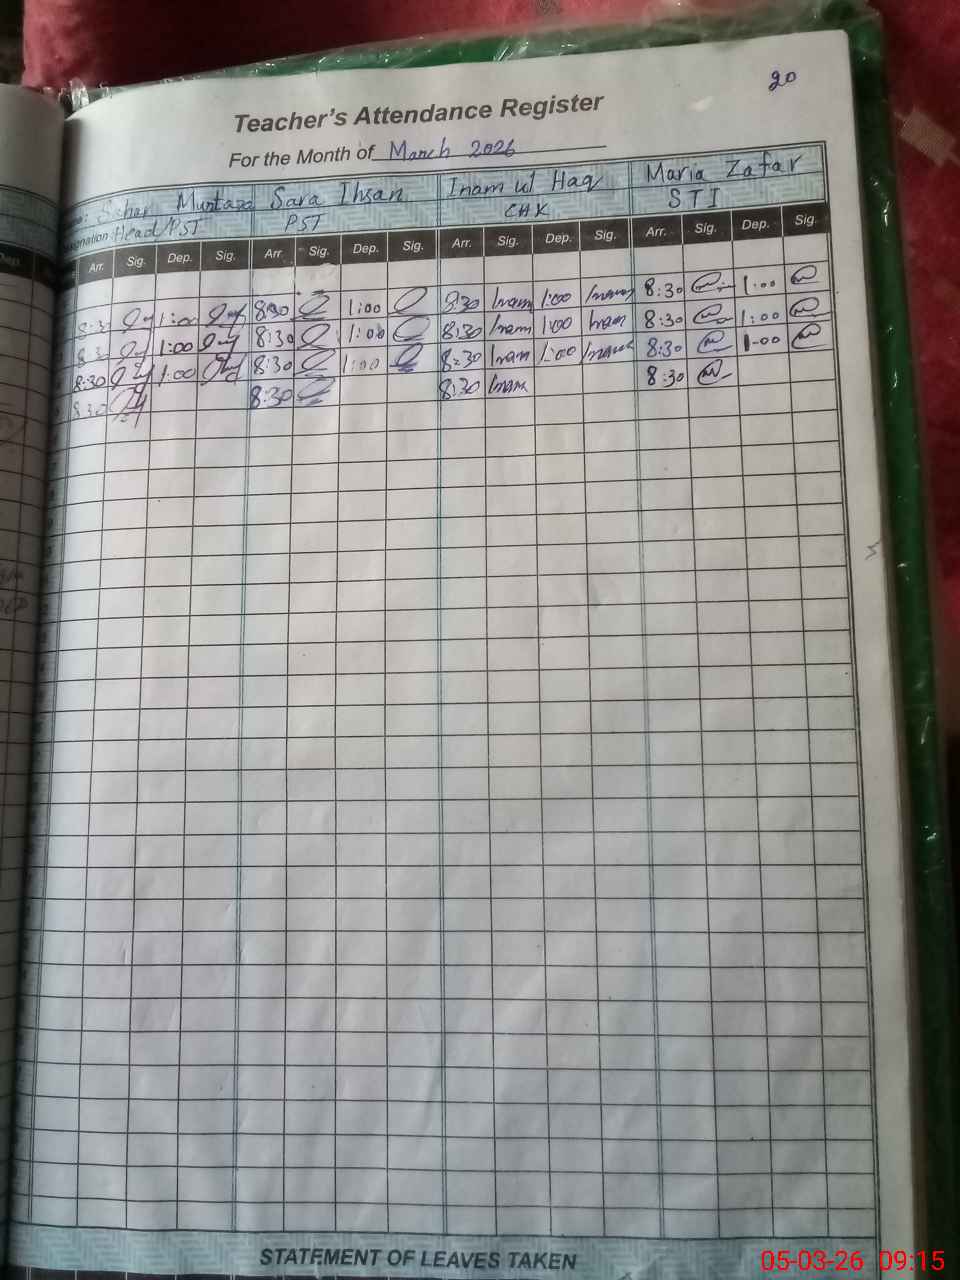 20
Teacher's Attendance Register
For the Month of March 2026
Sahar Murtaza Sara Ihsan Inam ul Haq Maria Zafar
Head/PST PST CHK STI
Dep.
Arr. Sig. Dep. Sig. Arr. Sig. Dep. Sig. Arr. Sig. Dep. Sig. Arr. Sig. Dep. Sig.
8:3 1:00 8:30 1:00 8:30 Inam 1:00 Inam 8:30 1:00
8:3 1:00 8:30 1:00 8:30 Inam 1:00 Inam 8:30 1:00
8:30 1:00 8:30 1:00 8:30 Inam 1:00 Inam 8:30 1-00
8:30 8:30 8:30 Inam 8:30
STATEMENT OF LEAVES TAKEN
05-03-26 09:15